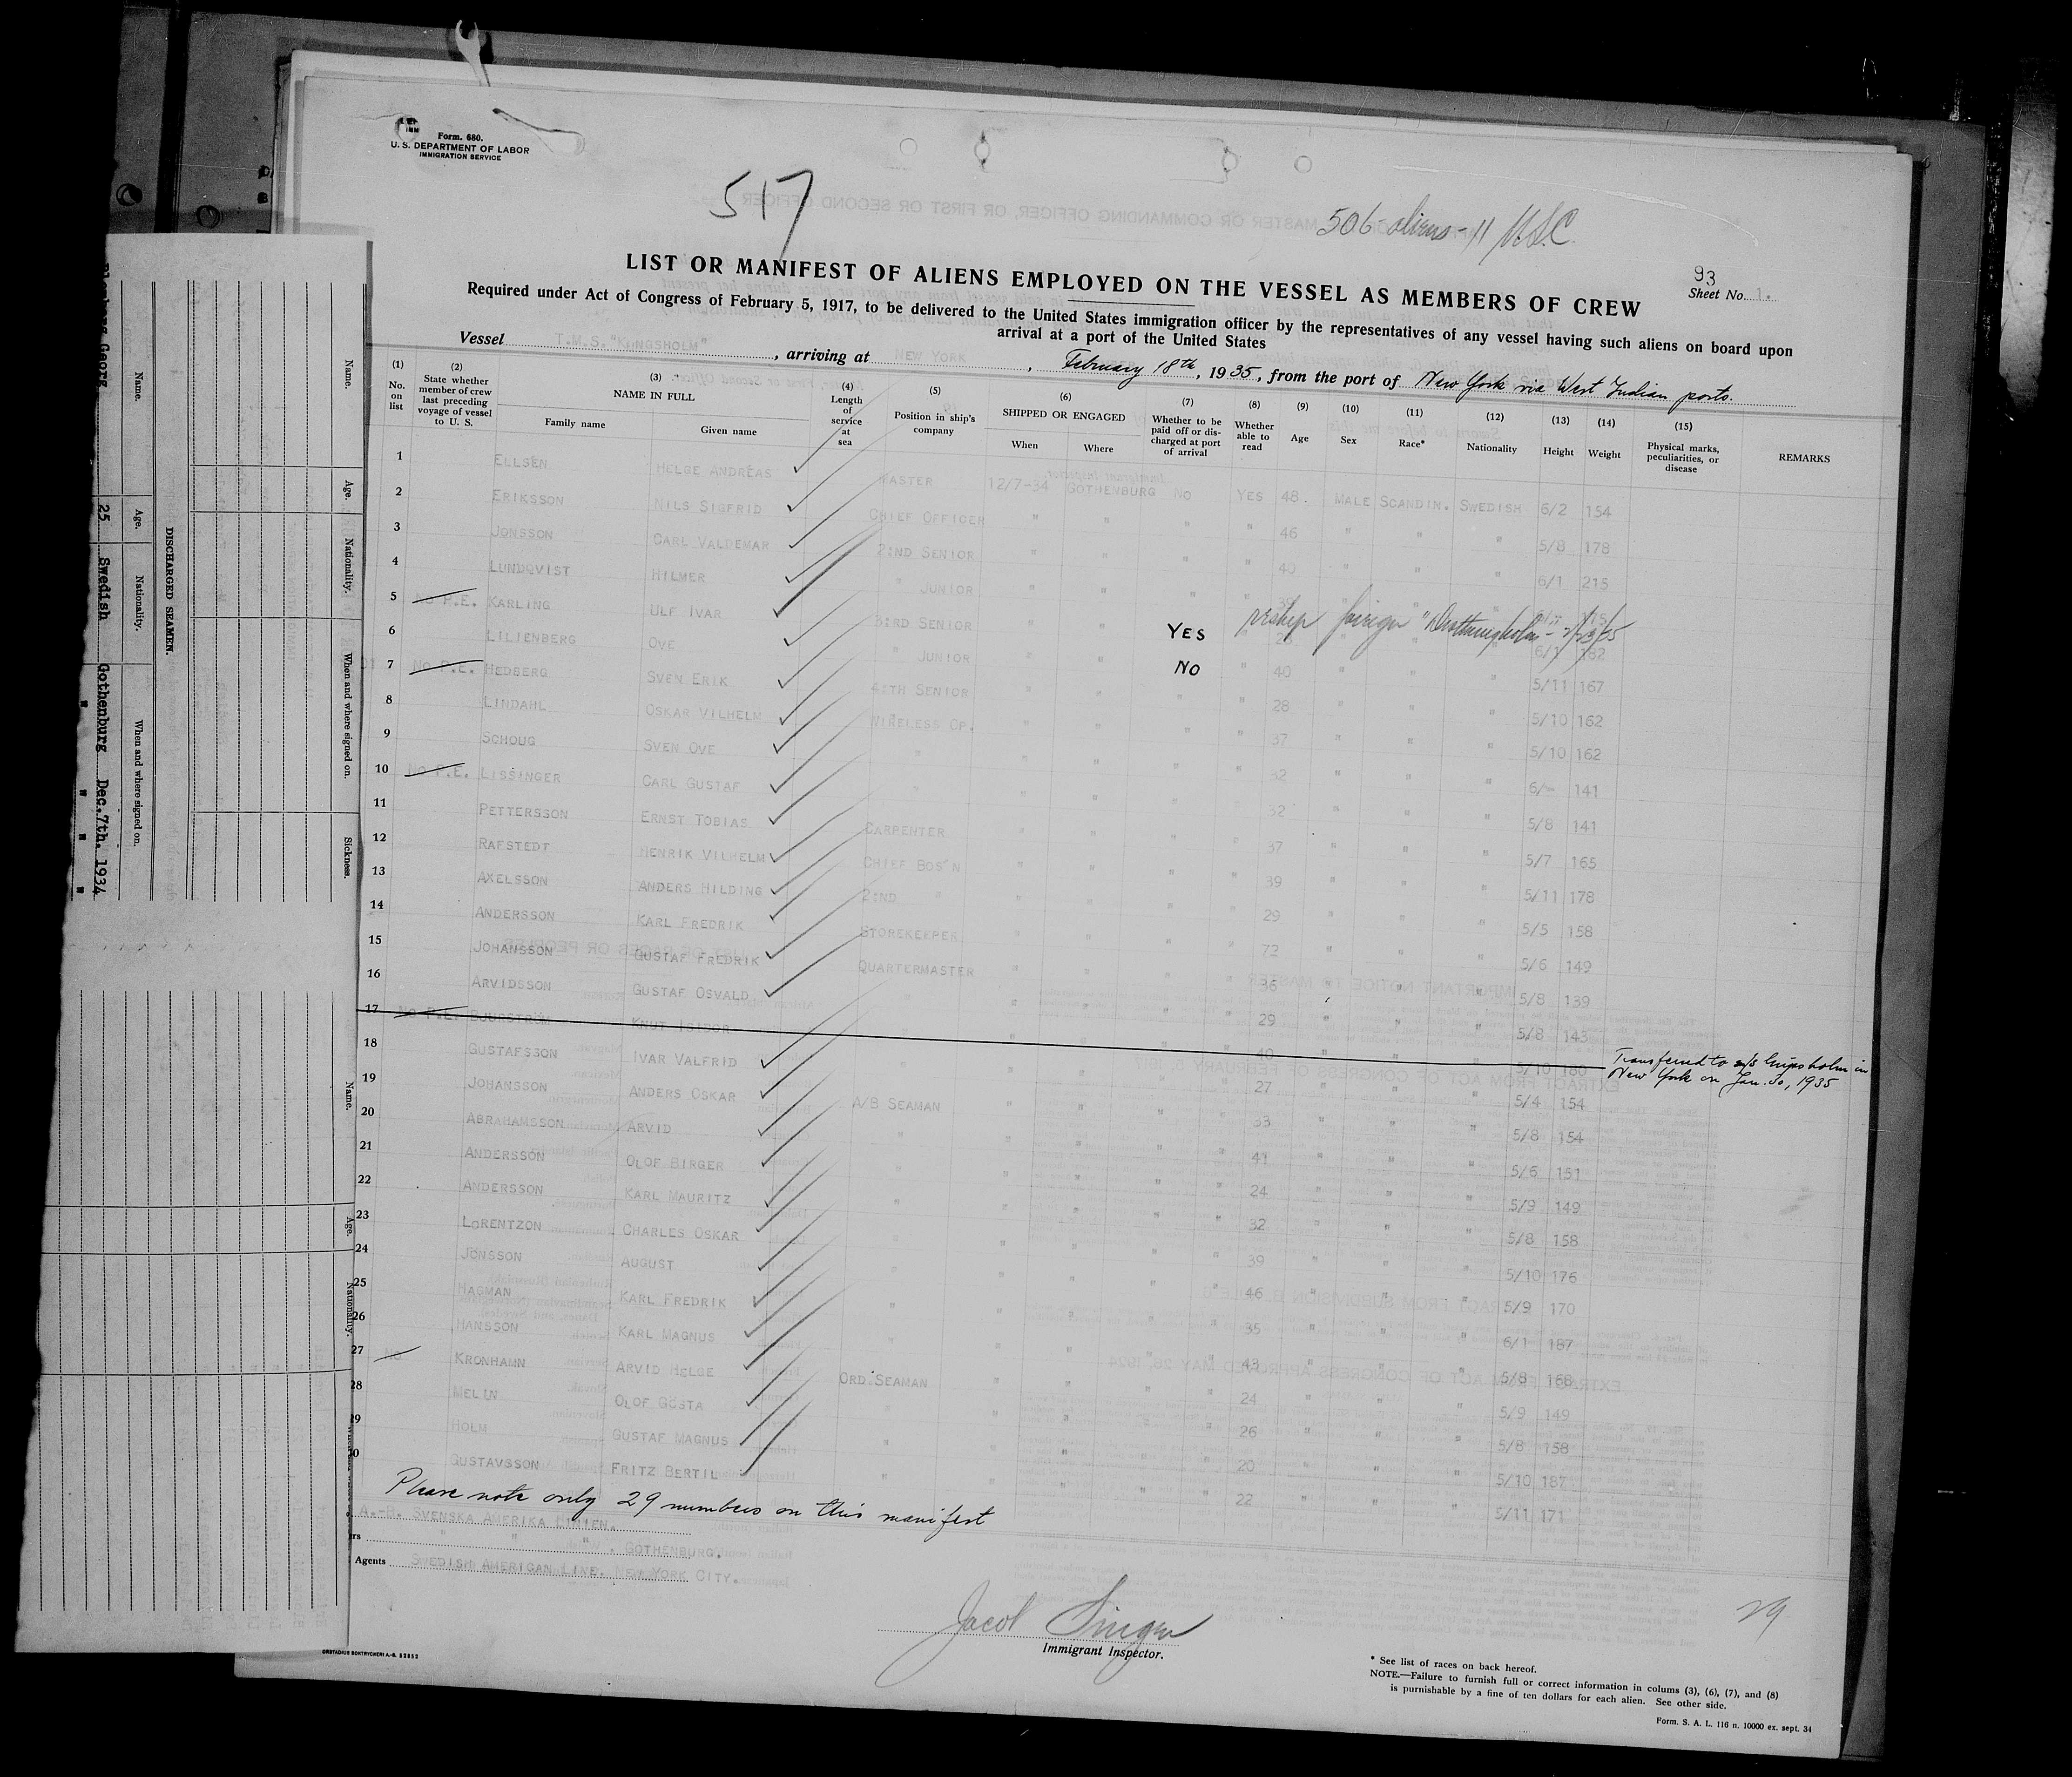 Form. 680.
U. S. DEPARTMENT OF LABOR
IMMIGRATION SERVICE
517
506 aliens - 11 U.S.C.
93
Sheet No. 1.
LIST OR MANIFEST OF ALIENS EMPLOYED ON THE VESSEL AS MEMBERS OF CREW
Required under Act of Congress of February 5, 1917, to be delivered to the United States immigration officer by the representatives of any vessel having such aliens on board upon
arrival at a port of the United States
Vessel T.M.S. "KUNGSHOLM", arriving at NEW YORK, February 18th, 1935, from the port of New York via West Indian ports.
(1) No. on list (2) State whether member of crew last preceding voyage of vessel to U. S. (3) NAME IN FULL Family name Given name (4) Length of service at sea (5) Position in ship's company (6) SHIPPED OR ENGAGED When Where (7) Whether to be paid off or discharged at port of arrival (8) Whether able to read (9) Age (10) Sex (11) Race* (12) Nationality (13) Height (14) Weight (15) Physical marks, peculiarities, or disease REMARKS
1 ELLSEN HELGE ANDREAS MASTER 12/7-34 GOTHENBURG NO YES 48. MALE SCANDIN. SWEDISH 6/2 154
2 ERIKSSON NILS SIGFRID CHIEF OFFICER " " " " 46 " " " 5/8 178
3 JONSSON CARL VALDEMAR 2:ND SENIOR " " " " 40 " " " 6/1 215
4 LUNDQVIST HILMER " JUNIOR " " " "
5 NO P.E. KARLING ULF IVAR 3:RD SENIOR " " YES " reship foreign "Drottningholm" 6/1 182
6 LILIENBERG OVE " JUNIOR " " NO " 40 " " " 5/11 167
7 NO P.E. HEDBERG SVEN ERIK 4:TH SENIOR " " " " 28 " " " 5/10 162
8 LINDAHL OSKAR VILHELM WIRELESS OP. " " " " 37 " " " 5/10 162
9 SCHOUG SVEN OVE " " " " " 32 " " " 6/- 141
10 NO P.E. LISSINGER CARL GUSTAF " " " " " 32 " " " 5/8 141
11 PETTERSSON ERNST TOBIAS CARPENTER " " " " 37 " " " 5/7 165
12 RAFSTEDT HENRIK VILHELM CHIEF BOS'N " " " " 39 " " " 5/11 178
13 AXELSSON ANDERS HILDING 2:ND " " " " " 29 " " " 5/5 158
14 ANDERSSON KARL FREDRIK STOREKEEPER " " " " 72 " " " 5/6 149
15 JOHANSSON GUSTAF FREDRIK QUARTERMASTER " " " " 36 " " " 5/8 139
16 ARVIDSSON GUSTAF OSVALD " " " " " 29 " " " 5/8 143
17 NO P.E. BJURSTRÖM KNUT ISIDOR " " " " " 40 " " " 5/10 180 Transferred to m/s Gripsholm in
New York on Jan. 30, 1935
18 GUSTAFSSON IVAR VALFRID " " " " " 27 " " " 5/4 154
19 JOHANSSON ANDERS OSKAR A/B SEAMAN " " " " 33 " " " 5/8 154
20 ABRAHAMSSON ARVID " " " " " 41 " " " 5/6 151
21 ANDERSSON OLOF BIRGER " " " " " 24 " " " 5/9 149
22 ANDERSSON KARL MAURITZ " " " " " 32 " " " 5/8 158
23 LORENTZON CHARLES OSKAR " " " " " 39 " " " 5/10 176
24 JONSSON AUGUST " " " " " 46 " " " 5/9 170
25 HAGMAN KARL FREDRIK " " " " " 35 " " " 6/1 187
26 HANSSON KARL MAGNUS " " " " " 43 " " " 5/8 168
27 NO KRONHAMN ARVID HELGE ORD.SEAMAN " " " " 24 " " " 5/9 149
28 MELIN OLOF GÖSTA " " " " " 26 " " " 5/8 158
29 HOLM GUSTAF MAGNUS " " " " " 20 " " " 5/10 187
30 GUSTAVSSON FRITZ BERTIL " " " " " 22 " " " 5/11 171
Please note only 29 numbers on this manifest
A.-B. SVENSKA AMERIKA LINIEN.
" " " , GOTHENBURG.
Agents SWEDISH AMERICAN LINE. NEW YORK CITY.
29
Jacob Singer
Immigrant Inspector.
* See list of races on back hereof.
NOTE.—Failure to furnish full or correct information in colums (3), (6), (7), and (8)
is punishable by a fine of ten dollars for each alien. See other side.
Form. S. A. L. 116 n. 10000 ex. sept. 34
DISCHARGED SEAMEN.
Name. Age. Nationality. When and where signed on.
Georg 25 Swedish Gothenburg Dec.7th. 1934
Name. Age. Nationality. When and where signed on. Sickness.
Name. Age. Nationality.